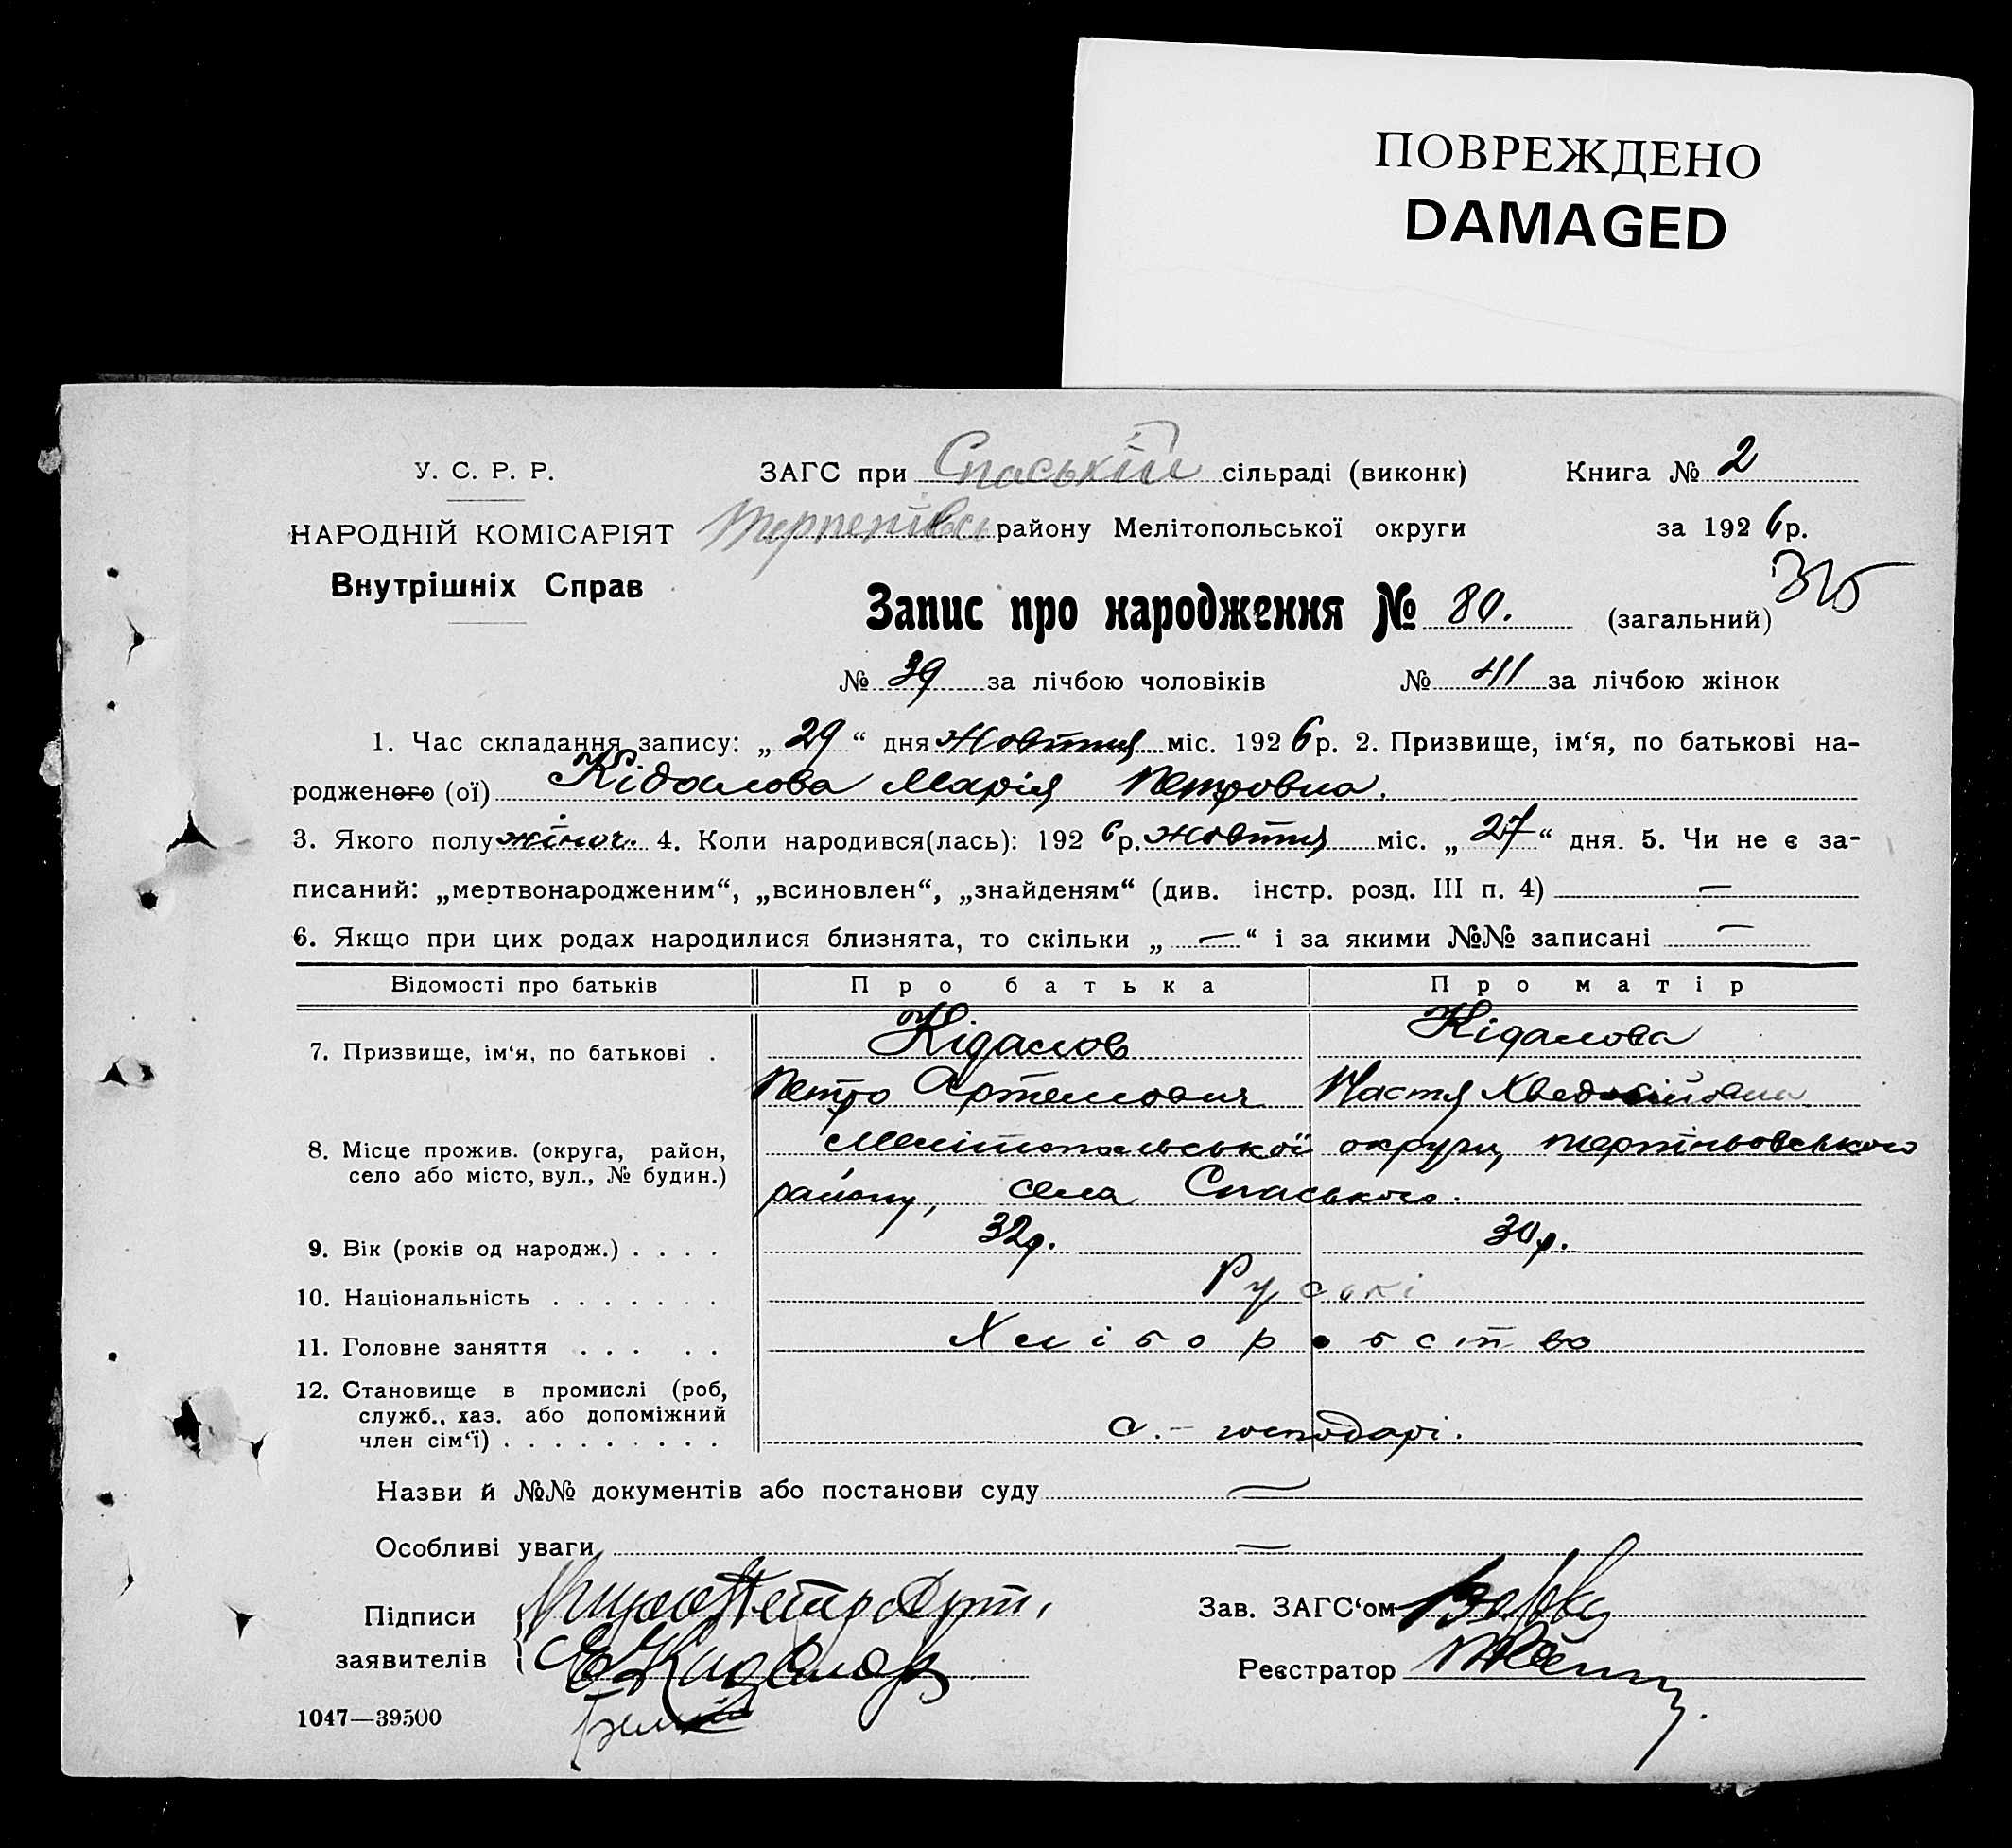 ПОВРЕЖДЕНО
DAMAGED
У. С. Р. Р.
ЗАГС при Спаській сільраді (виконк)
Книга № 2
НАРОДНІЙ КОМІСАРІЯТ
районy Мелітопольської округи
за 1926 р.
Внутрішніх Справ
315
Запис про народження № 80. (загальний)
№ 39 за лічбою чоловіків № 41 за лічбою жінок
1. Час складання запису: „29“ дня Жовтня міс. 1926 р. 2. Призвище, ім‘я, по батькові на-
родженого (ої) Кідалова Марія Петровна.
3. Якого полу жіноч. 4. Коли народився(лась): 1926 р. Жовтня міс. „27“ дня. 5. Чи не є за-
писаний: „мертвонародженим“, „всиновлен“, „знайденям“ (див. інстр. розд. III п. 4) —
6. Якщо при цих родах народилися близнята, то скільки „—“ і за якими №№ записані —
Відомості про батьків Про батька Про матір
7. Призвище, ім‘я, по батькові . Кідалов Кідалова
Петро Артемович Настя
8. Місце прожив. (округа, район, Мелітопольської округи,
село або місто, вул., № будин.) району, села Спаського.
9. Вік (років од народж.) . . . . 32р. 30р.
10. Національність . . . . . . . Руські
11. Головне заняття . . . . . Хліборобство
12. Становище в промислі (роб,
служб., хаз. або допоміжний
член сім‘ї) . . . . . . . . . с.-господарі.
Назви й №№ документів або постанови суду —
Особливі уваги —
Підписи
Зав. ЗАГС‘ом
заявителів
Реєстратор
1047—39500